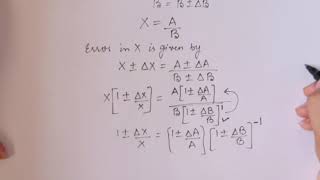 B = B ± ΔB
X = A/B
Error in X is given by
X ± ΔX = A ± ΔA / B ± ΔB
X[1 ± ΔX/X] = A[1 ± ΔA/A] / B[1 ± ΔB/B]¹
1 ± ΔX/X = [1 ± ΔA/A] [1 ± ΔB/B]⁻¹